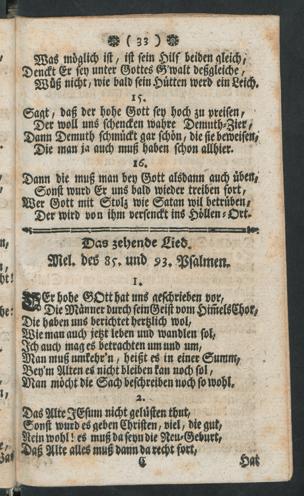 ❀ ( 33 ) ❀
Was möglich ist, ist sein Hilf beiden gleich,
Denckt Er sey unter Gottes G'walt deßgleiche,
Wüß nicht, wie bald sein Hütten werd ein Leich.
15.
Sagt, daß der hohe Gott sey hoch zu preisen,
Der woll uns schencken wahre Demuth-Zier,
Dann Demuth schmückt gar schön, die sie beweisen,
Die man ja auch muß haben schon allhier.
16.
Dann die muß man bey Gott alsdann auch üben,
Sonst wurd Er uns bald wieder treiben fort,
Wer Gott mit Stolz wie Satan wil betrüben,
Der wird von ihm versenckt ins Höllen-Ort.
Das zehende Lied.
Mel. des 85. und 93. Psalmen.
1.
Er hohe GOtt hat uns geschrieben vor,
Die Männer durch sein Geist vom Him̃els Chor,
Die haben uns berichtet hertzlich wol,
Wie man auch jetzt leben und wandlen sol,
Ich auch mag es betrachten um und um,
Man muß umkehr'n, heißt es in einer Summ,
Bey'm Alten es nicht bleiben kan noch sol,
Man möcht die Sach beschreiben noch so wohl.
2.
Das Alte JEsum nicht gelüsten thut,
Sonst wurd es geben Christen, viel, die gut,
Nein wohl! es muß da seyn die Neu-Geburt,
Daß Alte alles muß dann da recht fort,
C Hat